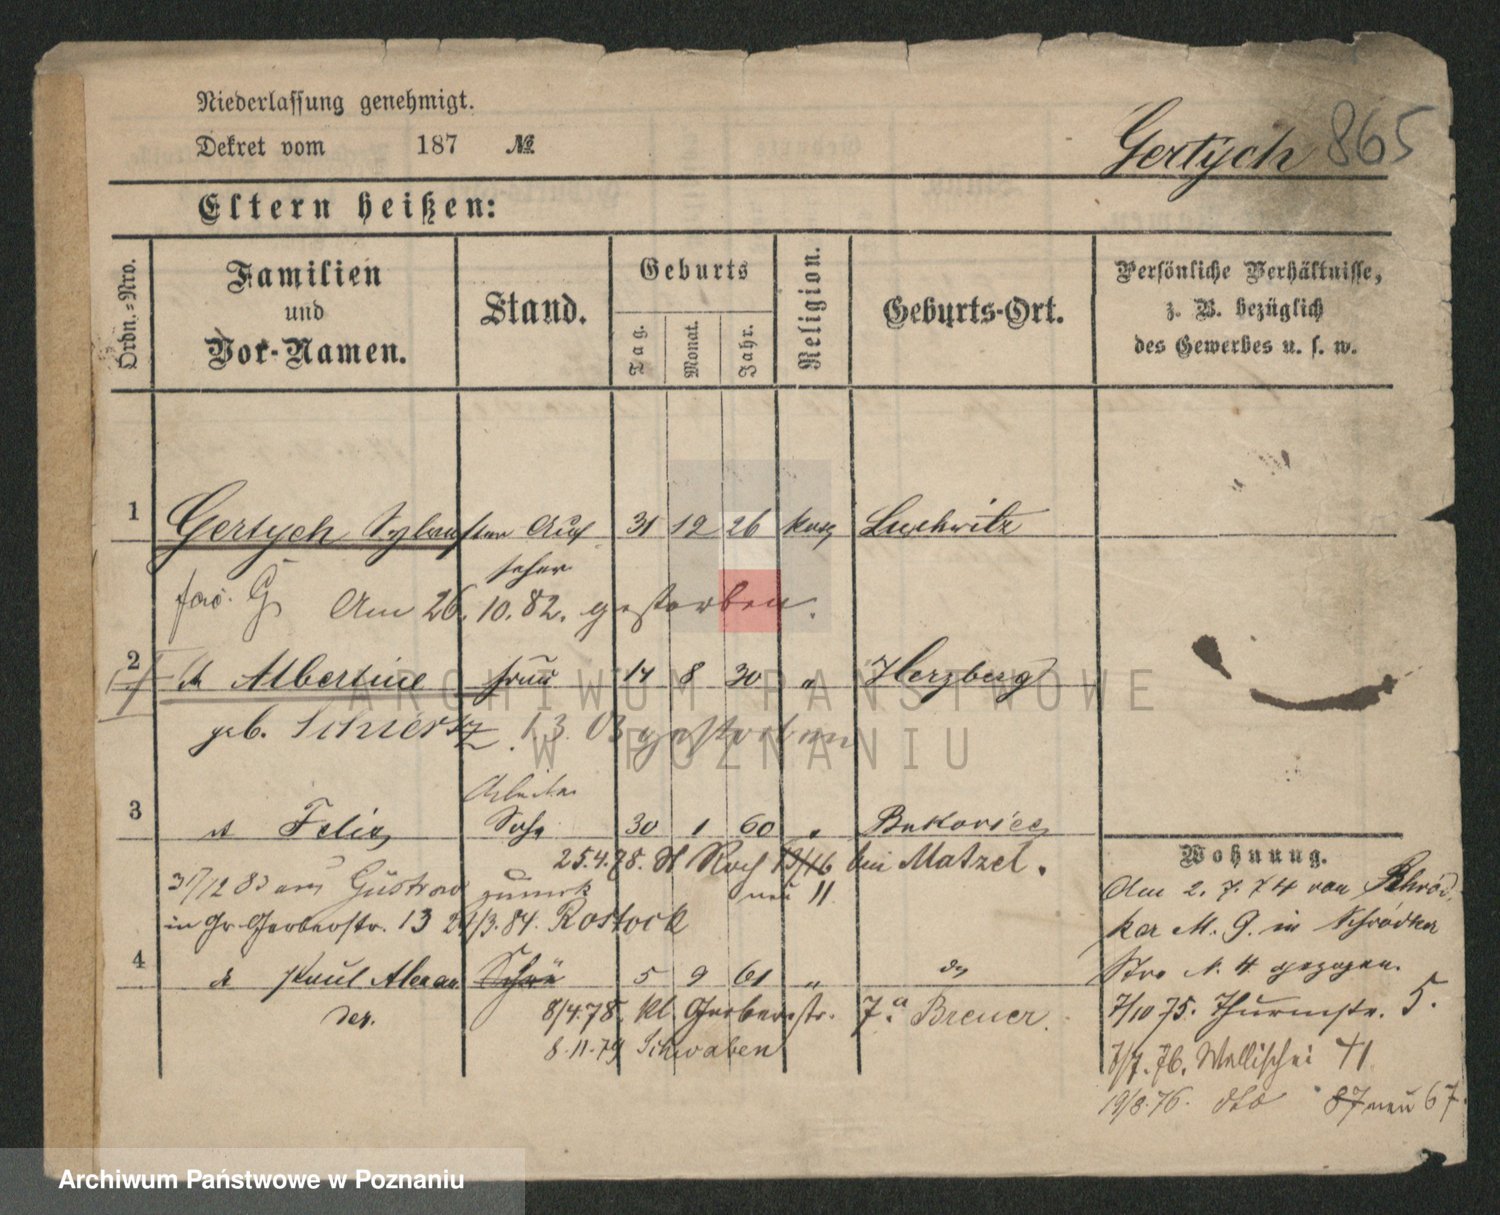 Niederlassung genehmigt.
Dekret vom 187 №
Gertych 865
Eltern heißen:
Ordn.-Nro.
Familien und Vor-Namen.
Stand.
Geburts
Tag.
Monat.
Jahr.
Religion.
Geburts-Ort.
Persönliche Verhältnisse,
z. B. bezüglich
des Gewerbes u. s. w.
1 Gertych Sylvester Auf 31 12 26 Luchwitz
seher
G Am 26. 10. 82. gestorben.
2 Albertine Frau 14 8 30 " Herzberg
geb. gestorben
Arbeiter
3 Felix Sohn 30 1 60 " Bukowiec
25.4.78. St Roch 13/16 bei Matzel.
31/12 83 aus Güstrow zurück neu 11
in Gr. Gerberstr. 13 /3. 84. Rostock
4 Paul Alexan 5 9 61 "
der.
8/4.78. kl. Gerberstr. 7a Breuer.
8.11.79 Schwaben
Wohnung.
Am 2. 7. 74 von Schrod
ka M. G. in Schrodka
Str. N. 4 gezogen.
7/10 75. Thurmstr. 5.
7/7. 76. Wallischei 41
19/8.76. dto 87 neu 67.
ARCHIWUM PAŃSTWOWE
W POZNANIU
Archiwum Państwowe w Poznaniu